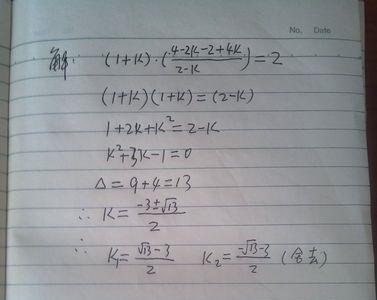 No. Date
解: (1+K)·(\frac{4-2K-2+4K}{2-K})=2
(1+K)(1+K)=(2-K)
1+2K+K²=2-K
K²+3K-1=0
Δ=9+4=13
∴ K=\frac{-3±√13}{2}
∴ K₁=\frac{√13-3}{2} K₂=\frac{-√13-3}{2} (舍去)